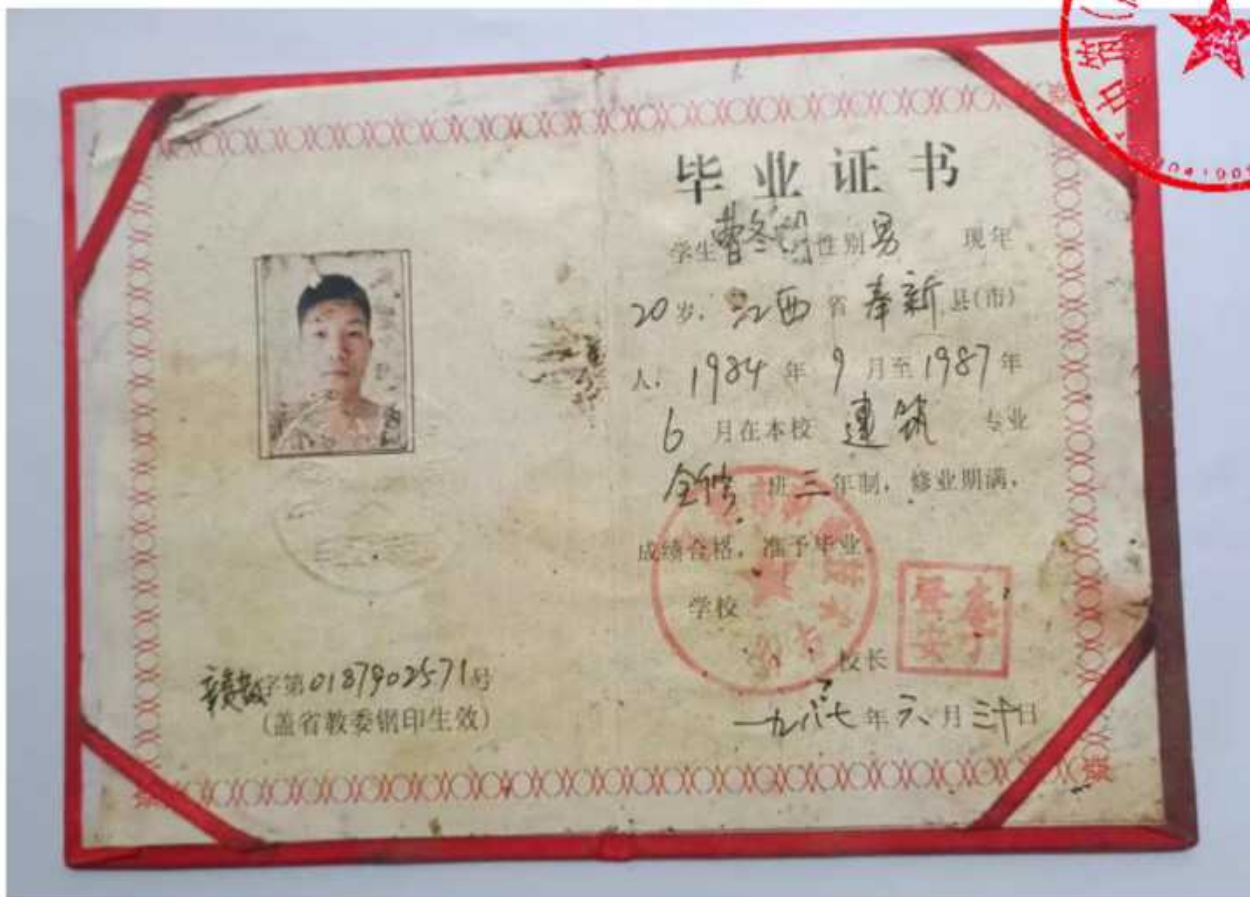 毕业证书
学生曹冬 性别男 现年
20岁，江西省奉新县(市)
人，1984年9月至1987年
6月在本校建筑专业
全 班三年制，修业期满，
成绩合格，准予毕业
学校
校长
一九八七年六月三十日
字第0187902571号
(盖省教委钢印生效)